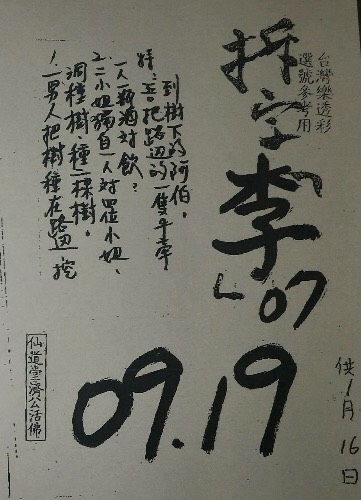 台灣樂透彩
選號參考用
拆字李
07
09.19
供1月16日
1.一男人把樹種在路边挖
洞種樹，種一棵樹。
2.二小姐獨自一人对四位小姐、
一人一瓶酒对飲？
吾把路边的一隻牛牽
到樹下的阿伯，
仙道堂濟公活佛